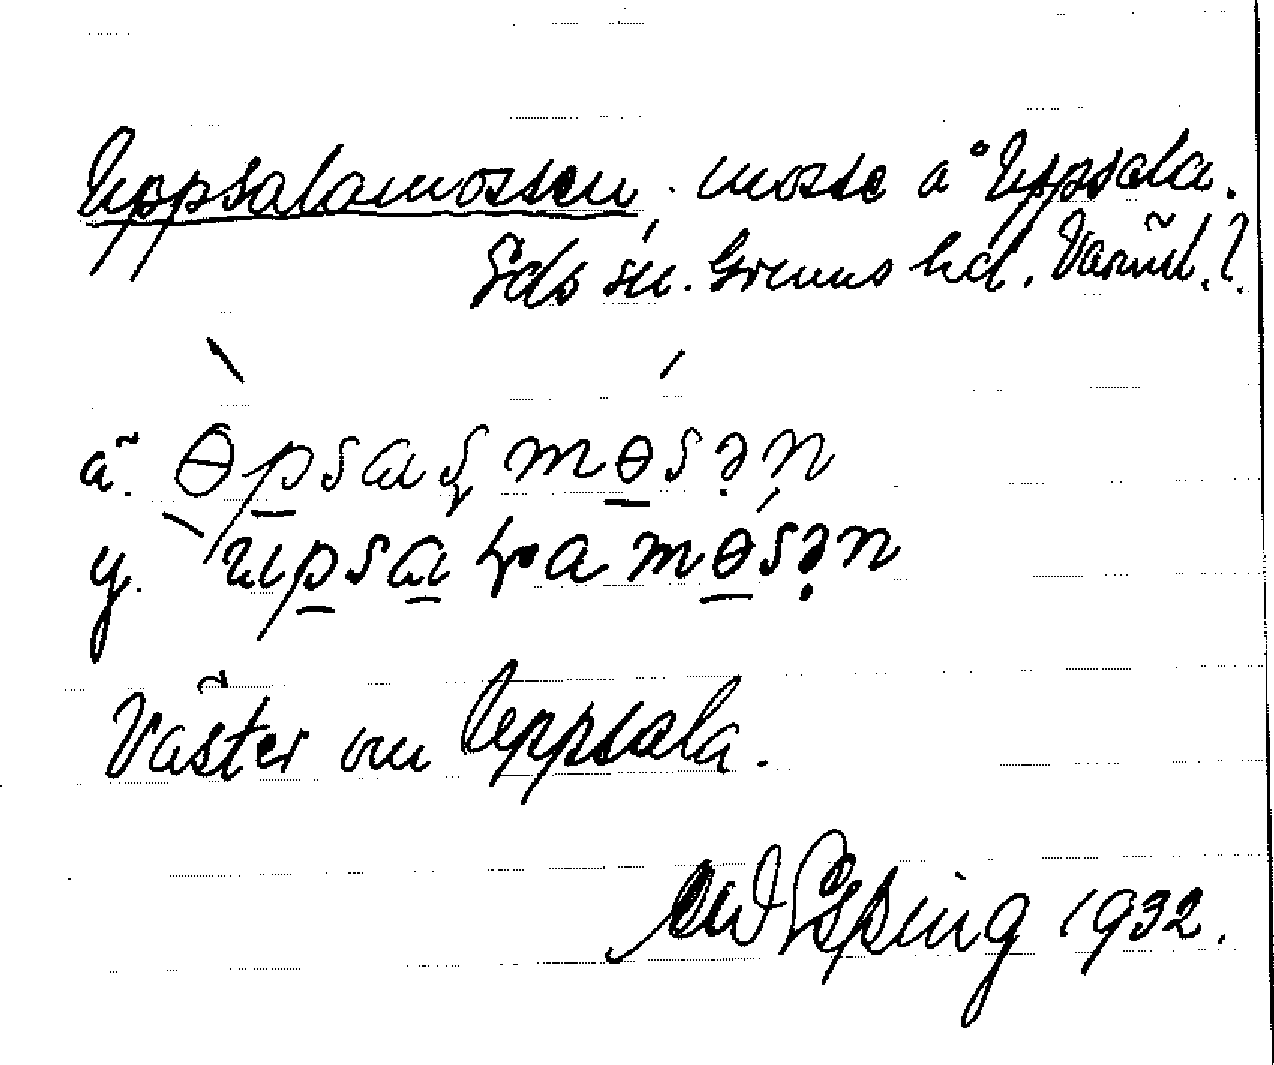 Uppsalamossen, mosse å Uppsala.
Eds sn. Grums hd. Värml.?
ä. ɵpsaɽmɵsən
y. upsaɽamɵsən
Väster om Uppsala.
Espling 1932.